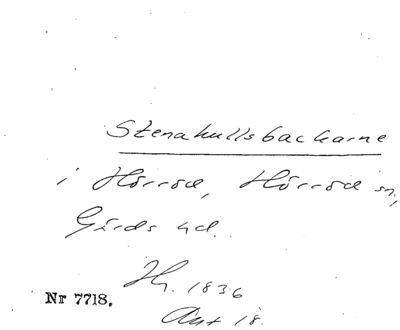 Stenakullsbackarne
i Hörröd, Hörröd sn,
Gärds hd.
Hy. 1836
Akt 18.
Nr 7718.